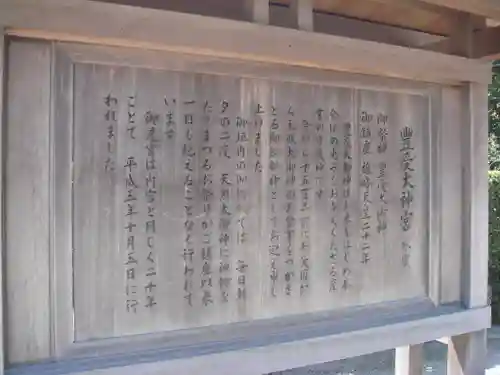 豊受大神宮 外宮
御祭神 豊受大御神
御鎮座 雄略天皇二十二年
豊受大御神はお米をはじめ衣
食住の恵みをお与えくださる産
業の守護神です
今から千五百年前に丹波国か
ら天照大御神のお食事をつかさ
どる御饌都神としてお迎え申し
上げました
御垣内の御饌殿では 毎日朝
夕の二度 天照大御神に神饌を
たてまつるお祭りがご鎮座以来
一日も絶えることなく行われて
います
御遷宮は内宮と同じく二十年
ごとで 平成五年十月五日に行
われました